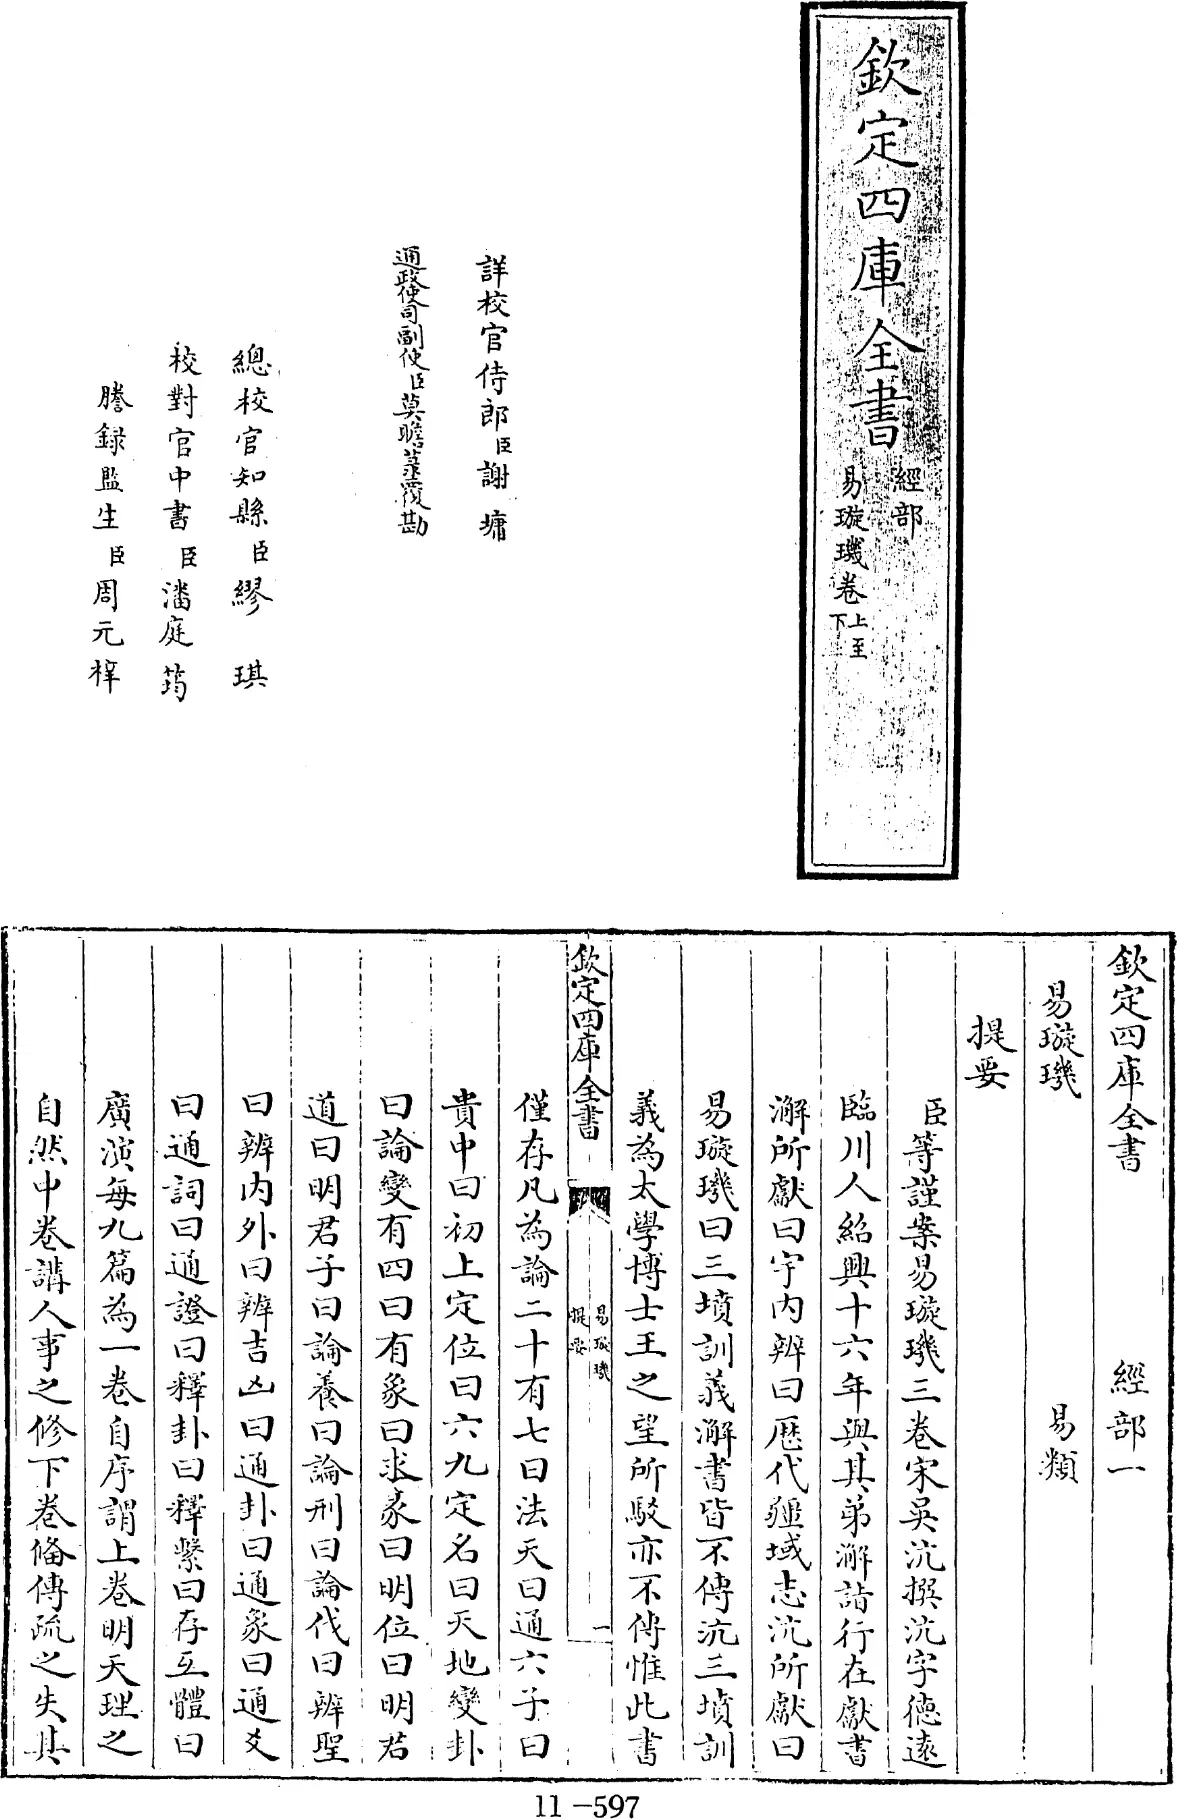 欽定四庫全書
經部
易璇璣卷上至下
詳校官侍郎臣謝墉
通政使司副使臣莫瞻菉覆勘
總校官知縣臣繆琪
校對官中書臣潘庭筠
謄録監生臣周元梓
欽定四庫全書 經部一
易璇璣 易類
提要
臣等謹案易璇璣三卷宋吳沆撰沆字德遠
臨川人紹興十六年與其弟澥詣行在獻書
澥所獻曰宇内辨曰歷代疆域志沆所獻曰
易璇璣曰三墳訓義澥書皆不傳沆三墳訓
義為太學博士王之望所駁亦不傳惟此書
欽定四庫全書
易璇璣
提要
一
僅存凡為論二十有七曰法天曰通六子曰
貴中曰初上定位曰六九定名曰天地變卦
曰論變有四曰有象曰求彖曰明位曰明君
道曰明君子曰論養曰論刑曰論伐曰辨聖
曰辨内外曰辨吉凶曰通卦曰通象曰通爻
曰通詞曰通證曰釋卦曰釋繫曰存互體曰
廣演每九篇為一卷自序謂上卷明天理之
自然中卷講人事之修下卷備傳疏之失其
11-597